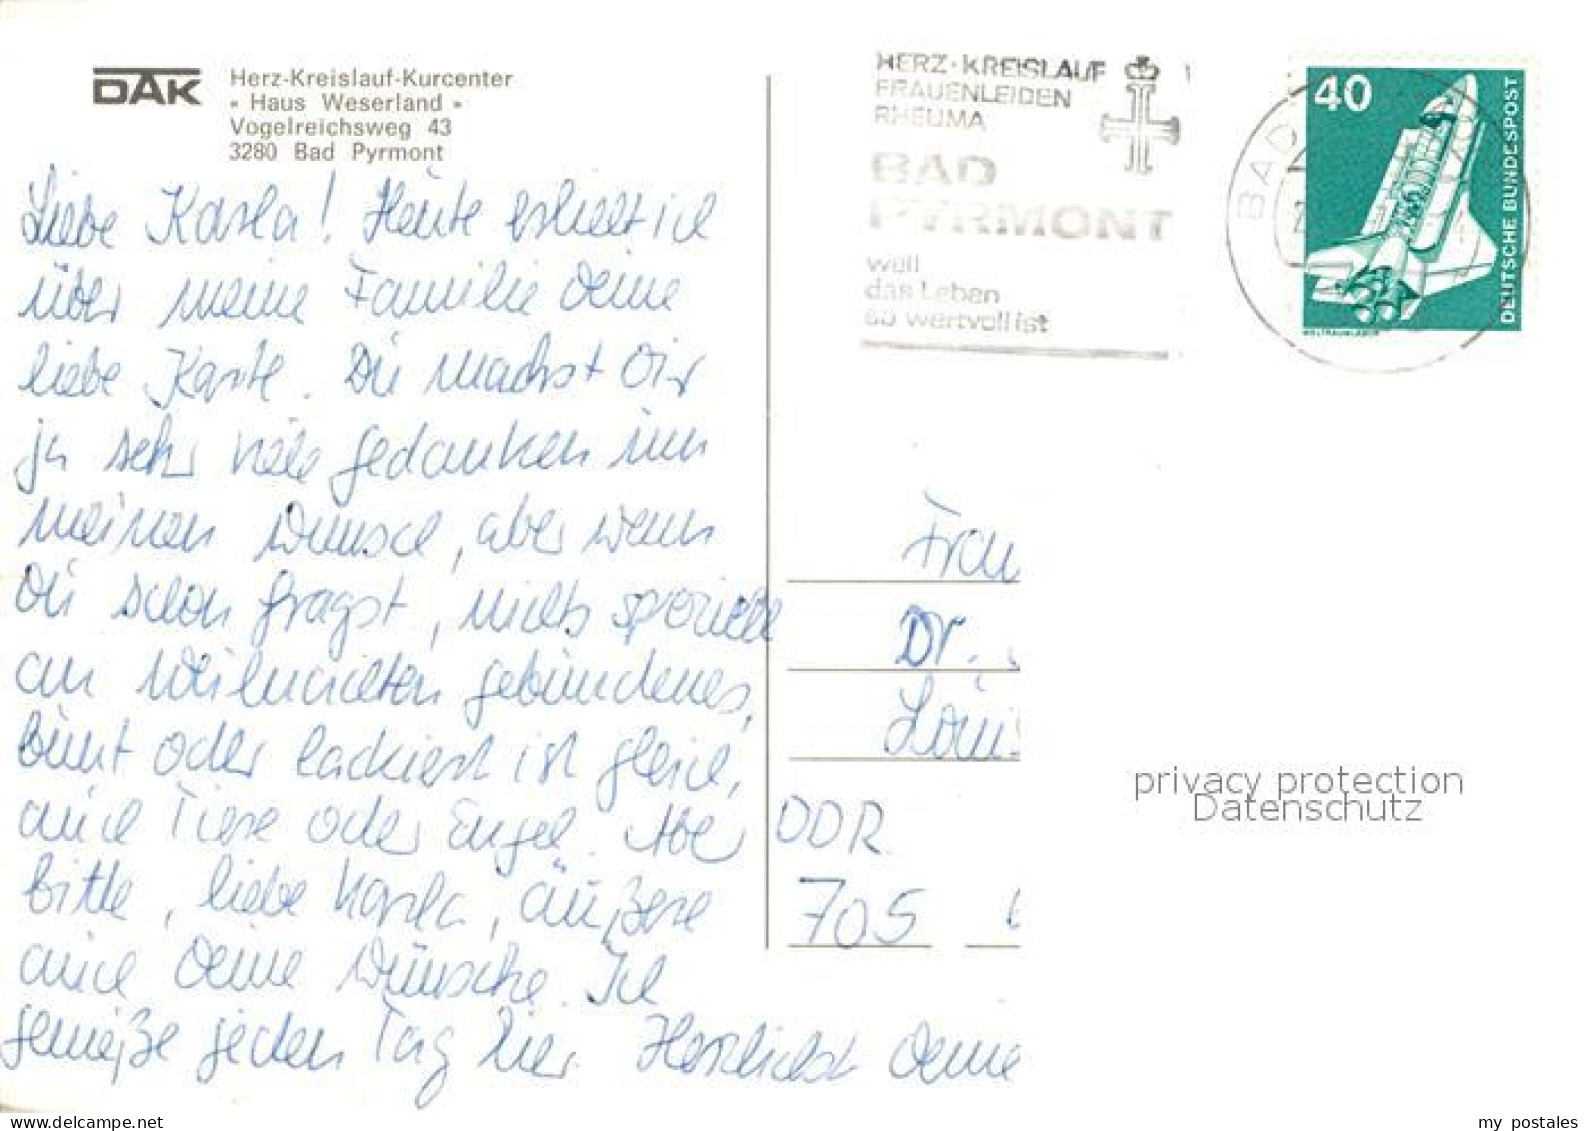 DAK
Herz-Kreislauf-Kurcenter
« Haus Weserland »
Vogelreichsweg 43
3280 Bad Pyrmont
Liebe Karla! Heute erhielt ich
über meine Familie Deine
liebe Karte. Du machst Dir
ja sehr viele Gedanken um
meinen Wunsch, aber wenn
Du schon fragst, nichts spezielle
an Weihnachten gebundenes,
bunt oder lackiert ist gleich,
auch Tiere oder Engel. Aber
bitte, liebe Karla, äußere
auch Deine Wünsche. Ich
genieße jeden Tag hier. Herzlichst Deine
HERZ-KREISLAUF
FRAUENLEIDEN
RHEUMA
BAD
PYRMONT
weil
das Leben
so wertvoll ist
BAD
40
DEUTSCHE BUNDESPOST
WELTRAUMLABOR
Frau
Dr.
Louis
DDR
705
privacy protection
Datenschutz
my postales